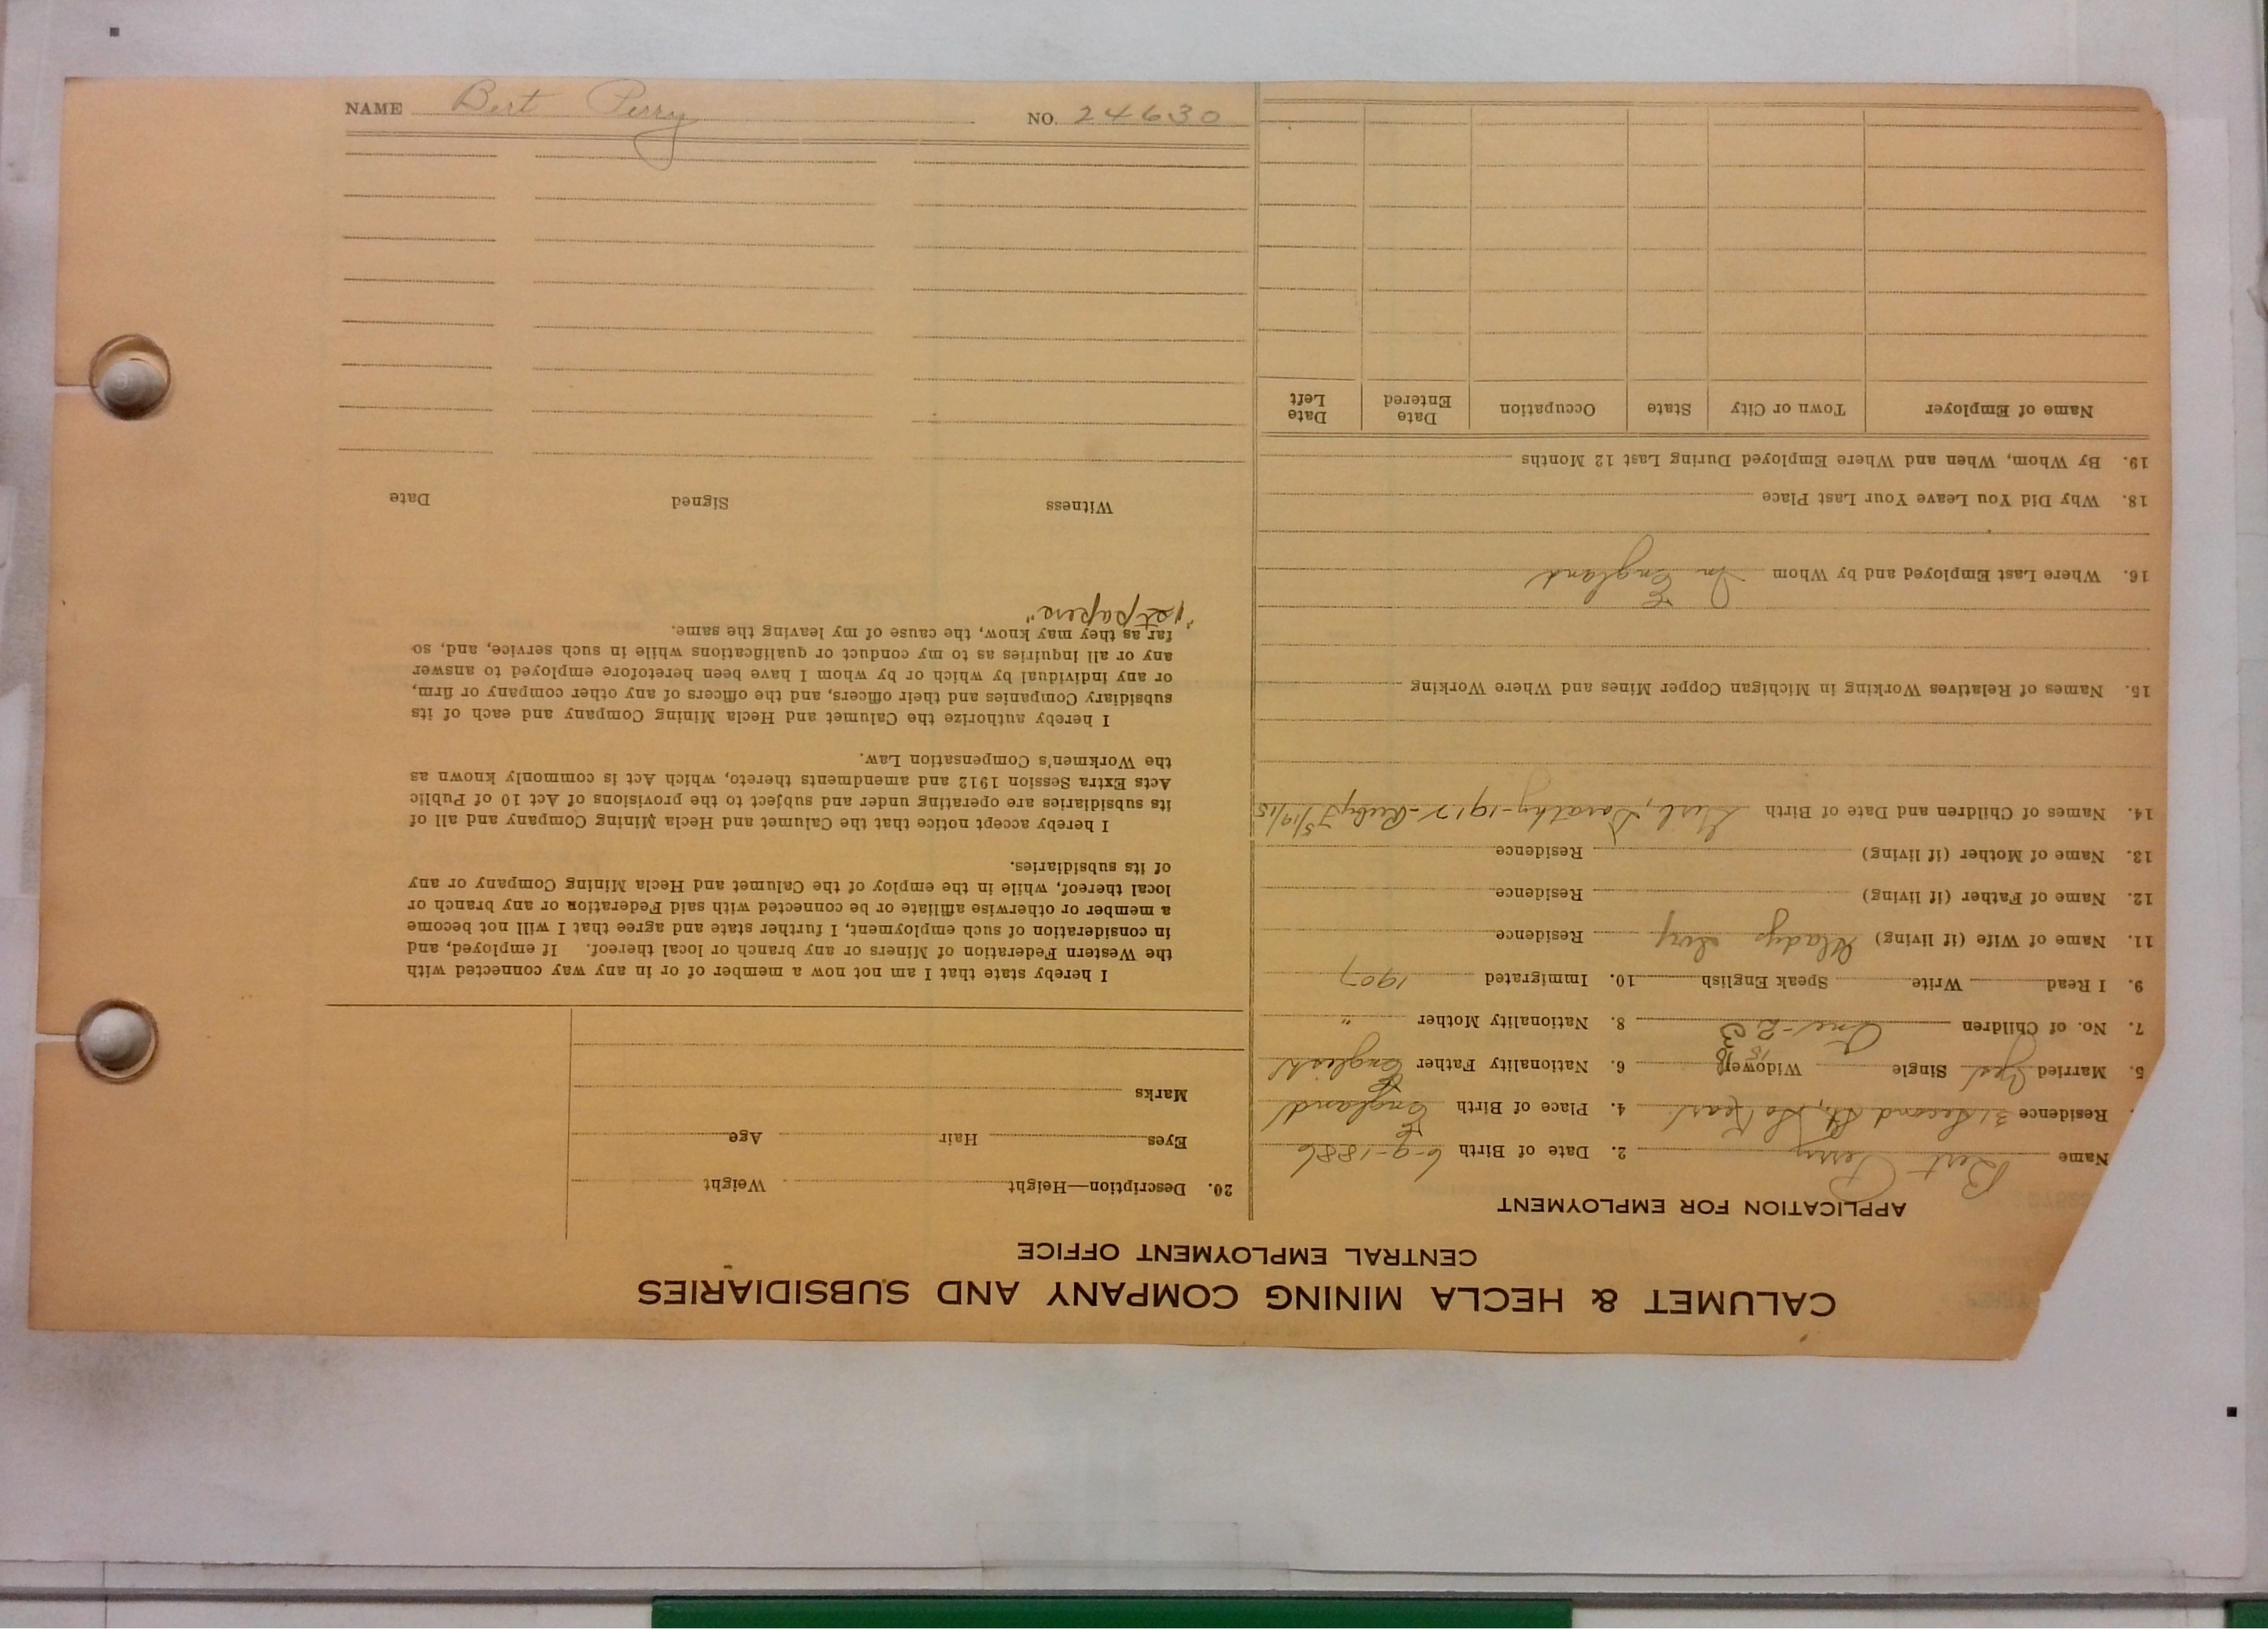 NAME Bert Perry NO. 24630
CALUMET & HECLA MINING COMPANY AND SUBSIDIARIES
CENTRAL EMPLOYMENT OFFICE
APPLICATION FOR EMPLOYMENT
Name Bert Perry 2. Date of Birth 6-9-1886
Residence 31 Second St, So Kearl 4. Place of Birth England
5. Married Yes Single Widower 6. Nationality Father English
7. No. of Children One-2 3 8. Nationality Mother "
9. I Read Write Speak English 10. Immigrated 1907
11. Name of Wife (if living) Gladys Residence
12. Name of Father (if living) Residence
13. Name of Mother (if living) Residence
14. Names of Children and Date of Birth Girl, Dorathy-1917-Ruby
15. Names of Relatives Working in Michigan Copper Mines and Where Working
16. Where Last Employed and by Whom In England
18. Why Did You Leave Your Last Place
19. By Whom, When and Where Employed During Last 12 Months
Name of Employer Town or City State Occupation Date Entered Date Left
20. Description—Height Weight
Eyes Hair Age
Marks
I hereby state that I am not now a member of or in any way connected with
the Western Federation of Miners or any branch or local thereof. If employed, and
in consideration of such employment, I further state and agree that I will not become
a member or otherwise affiliate or be connected with said Federation or any branch or
local thereof, while in the employ of the Calumet and Hecla Mining Company or any
of its subsidiaries.
I hereby accept notice that the Calumet and Hecla Mining Company and all of
its subsidiaries are operating under and subject to the provisions of Act 10 of Public
Acts Extra Session 1912 and amendments thereto, which Act is commonly known as
the Workmen's Compensation Law.
I hereby authorize the Calumet and Hecla Mining Company and each of its
subsidiary Companies and their officers, and the officers of any other company or firm,
or any individual by which or by whom I have been heretofore employed to answer
any or all inquiries as to my conduct or qualifications while in such service, and, so
far as they may know, the cause of my leaving the same.
"1st papers"
Witness Signed Date